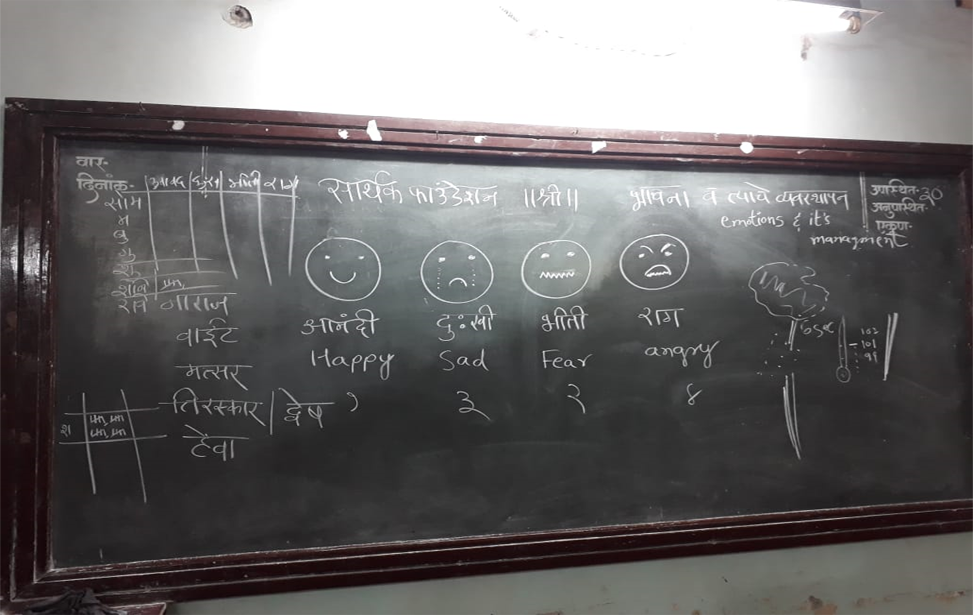 वार-
दिनांक-
आनंद दुःख भीती राग
सोम
म
बु
गु
श
शनि
रवि
सार्थक फाउंडेशन ॥श्री॥ भावना व त्याचे व्यवस्थापन
emotions & it's
management
उपस्थित- ३०
अनुपस्थित-
एकूण-
नाराज
वाईट
मत्सर
तिरस्कार / द्वेष
हेवा
आनंदी दुःखी भीती राग
Happy Sad Fear angry
१ ३ २ ४
6sec
103
101
99
श